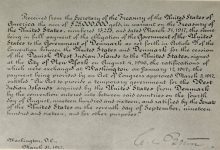 Received from the Secretary of the Treasury of the United States of
America the sum of $25,000,000 gold, in warrant on the Treasury of
the United States, numbered and dated March 31, 1917, the same
being in payment of the obligation of the Government of the United
States to the Government of Denmark as set forth in Article 5 of the
Convention between the United States and Denmark for the cession
of the Danish West Indies to the United States, signed
at the City of New York on August 4, 1916, the ratifications of
which were exchanged at Washington on January 17, 1917, the
payment being provided by an Act of Congress approved March 3, 1917,
entitled "An Act to provide a temporary government for the West
Indian Islands acquired by the United States from Denmark
by the convention entered into between said countries on the fourth
day of August, nineteen hundred and sixteen, and ratified by the Senate
of the United States on the seventh day of September, nineteen
hundred and sixteen, and for other purposes."
Washington, D.C.,
March 31, 1917.